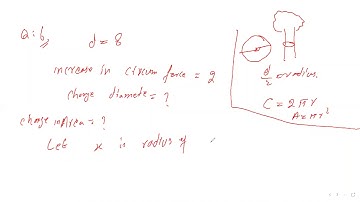 Q: 6
d = 8
increase in circumforce = 2
change diamete = ?
change in Area = ?
Let x is radius of
d/2 = radius.
C = 2πr
A = πr²